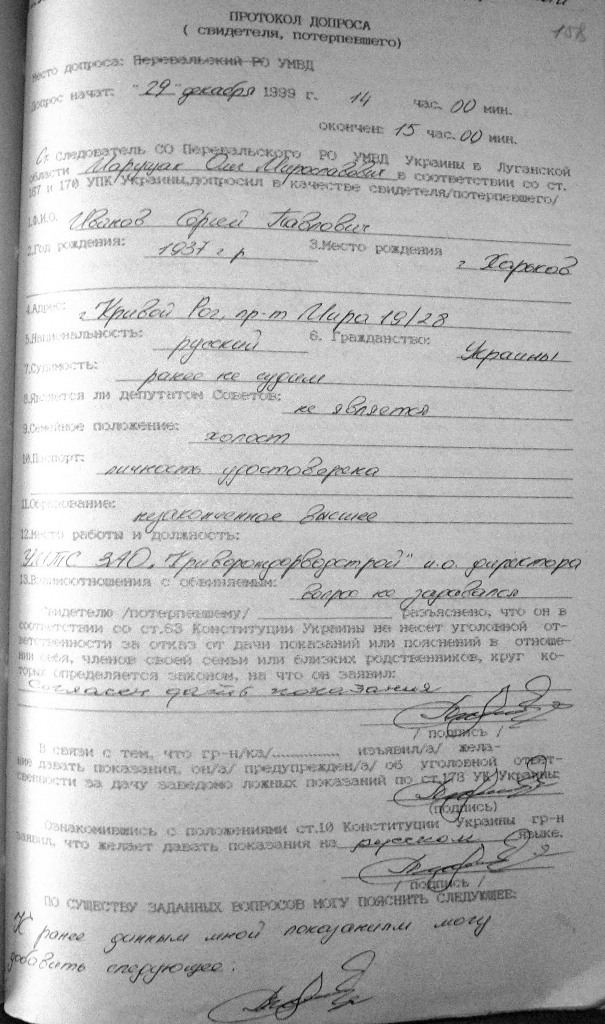 158
ПРОТОКОЛ ДОПРОСА
( свидетеля, потерпевшего)
Место допроса: Перевальский РО УМВД
Допрос начат: "29" декабря 1999 г. 14 час. 00 мин.
окончен: 15 час. 00 мин.
Ст. Следователь СО Перевальского РО УМВД Украины в Луганской
области Марущак Олег Мирославович в соответствии со ст.
167 и 170 УПК Украины, допросил в качестве свидетеля/потерпевшего/
1.Ф.И.О. Иванов Сергей Павлович
2.Год рождения: 1937 г р 3.Место рождения
г Харьков
4.Адрес: г Кривой Рог, пр-т Мира 19/28
5.Национальность: русский 6. Гражданство: Украины
7.Судимость: ранее не судим
8.Является ли депутатом Советов: не является
9.Семейное положение: холост
10.Паспорт: личность удостоверена
11.Образование: незаконченное высшее
12.Место работы и должность:
ЗАО и.о. директора
13.Взаимоотношения с обвиняемым: вопрос не задавался
Свидетелю /потерпевшему/ разъяснено, что он в
соответствии со ст.63 Конституции Украины не несет уголовной от-
ветственности за отказ от дачи показаний или пояснений в отноше-
нии себя, членов своей семьи или близких родственников, круг ко-
торых определяется законом, на что он заявил:
Согласен давать показания
/ подпись /
В связи с тем, что гр-н/ка/.............. изъявил/а/ жела-
ние давать показания, он/а/ предупрежден/а/ об уголовной ответ-
ственности за дачу заведомо ложных показаний по ст.178 УК Украины:
(подпись)
Ознакомившись с положениями ст.10 Конституции Украины гр-н
заявил, что желает давать показания на русском языке.
/ подпись /
ПО СУЩЕСТВУ ЗАДАННЫХ ВОПРОСОВ МОГУ ПОЯСНИТЬ СЛЕДУЮЩЕЕ:
К ранее данным мной показаниям могу
добавить следующее: